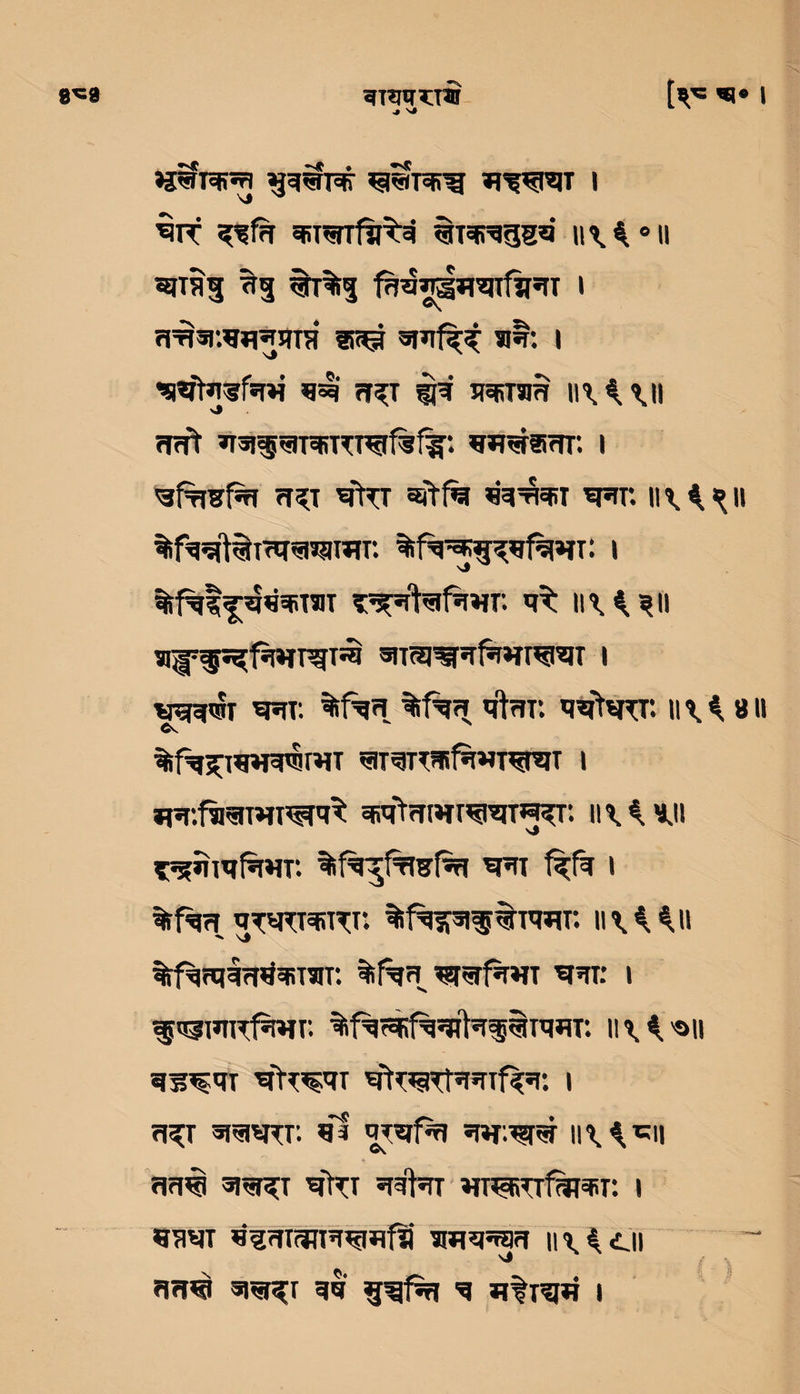 ४८४ वायुपुराणे [३८ अ० ।
भुवर्लोकं स्वर्लोकञ्च महस्तथा ।
घोरं दहति कालाग्निरेवं लोकचतुष्टयं ॥१६०॥
व्याप्तेषु तेषु लोकेषु तिर्यगूर्द्धमथाग्निना ।
तत्तेजः समनुप्राप्तं कृत्स्नं जगदिदं शनैः ।
अयोगुडनिभं सर्वं तदा ह्येवं प्रकाशते ॥१६१॥
ततो गजकुलाकारास्तडिद्भिः समलङ्कृताः ।
उत्तिष्ठन्ति तदा घोरा व्योम्नि संवर्त्तका घनाः ॥१६२॥
केचिन्नीलोत्पलश्यामाः केचित्कुमुदसन्निभाः ।
केचिद्वैदूर्य्यसंकाशा इन्द्रनीलनिभाः परे ॥१६३॥
शङ्खकुन्दनिभाश्चान्ये जात्यञ्जननिभास्तथा ।
धूम्रवर्णा घनाः केचित् केचित् पीताः पयोधराः ॥१६४॥
केचिद्रासभवर्णाभा लाक्षारसनिभास्तथा ।
मनःशिलाभास्त्वपरे कपोताभास्तथाम्बुदाः ॥१६५॥
इन्द्रगोपनिभाः केचिदुत्तिष्ठन्ति घना दिवि ।
केचित् पुरधराकाराः केचिद्गजकुलोपमाः ॥१६६॥
केचित्पर्वतसंकाशाः केचित् स्थलनिभा घनाः ।
केचित्केचिन्मीनकुलोपमाः ॥१६७॥
बहुरूपा घोररूपा घोरस्वरनिनादिनः ।
तदा जलधराः सर्वे पूरयन्ति नभःस्थलं ॥१६८॥
ततस्ते जलदा घोरा नवीना भास्करात्मिकाः ।
सप्तधा संवृतात्मानस्तमग्निं शमयन्त्युत ॥१६९॥
ततस्ते जलदा वर्षं मुञ्चन्ति च ।